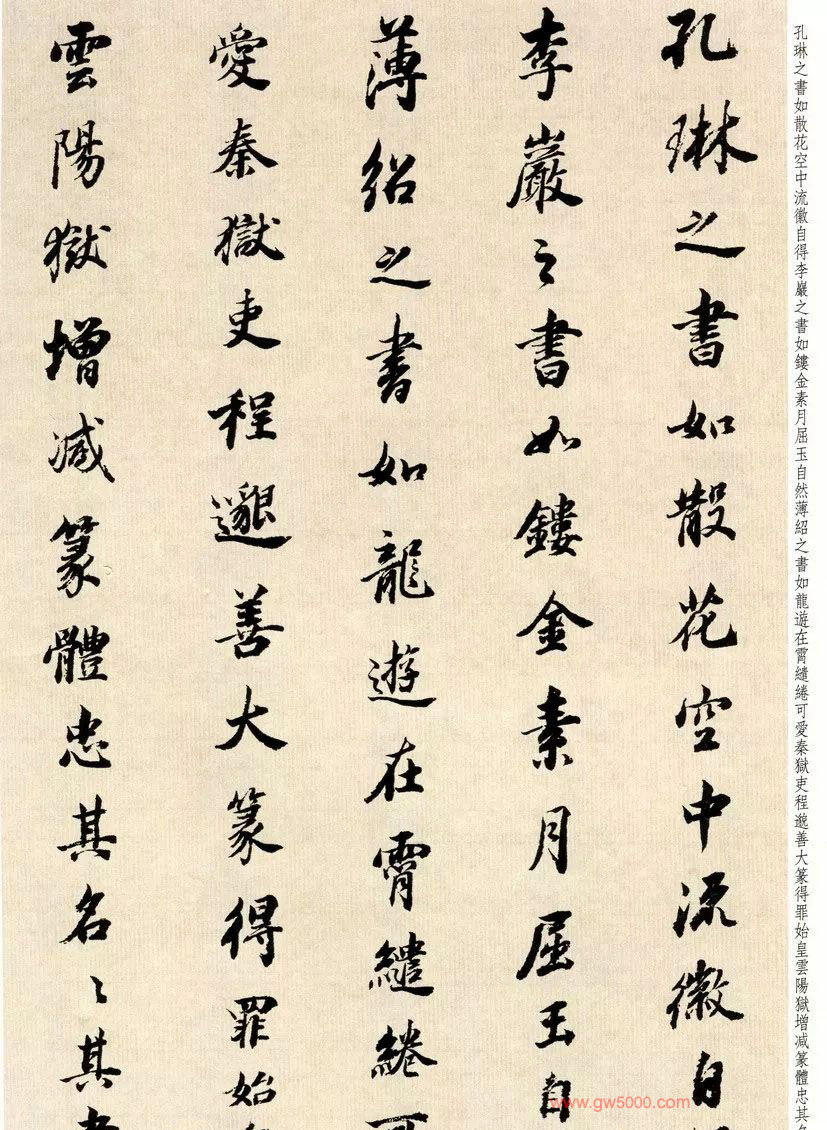 孔琳之書如散花空中流徽自
李巖之書如鏤金素月屈玉自
薄紹之書如龍遊在霄繾綣可
愛秦獄吏程邈善大篆得罪始
雲陽獄增减篆體忠其名〻其
孔琳之書如散花空中流徽自得李巖之書如鏤金素月屈玉自然薄紹之書如龍遊在霄繾綣可愛秦獄吏程邈善大篆得罪始皇雲陽獄增减篆體忠其名
www.gw5000.com